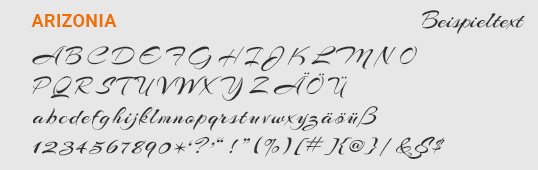 ARIZONIA
Beispieltext
ABCDEFGHIJKLMNO
PQRSTUVWXYZÄÖÜ
abcdefghijklmnopqrstuvwxyzäöüß
1234567890*‘?’“!”(%)[#]{@}/&§$